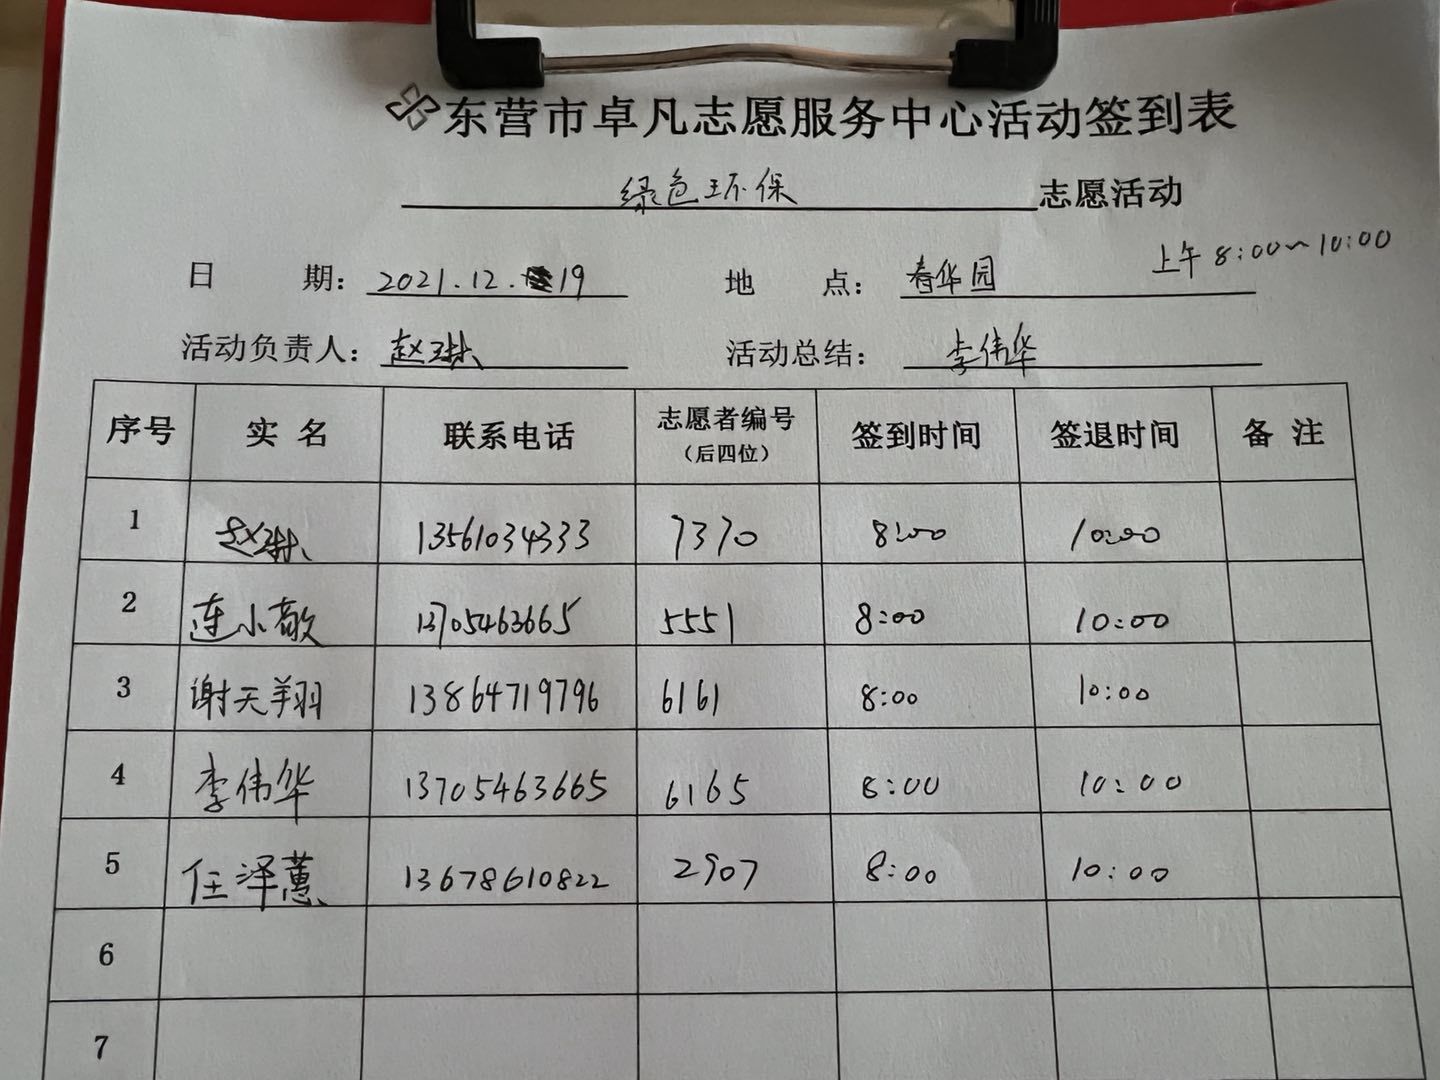 东营市卓凡志愿服务中心活动签到表
绿色环保 志愿活动
上午 8:00~10:00
日 期: 2021.12.19 地 点: 春华园
活动负责人: 赵琳 活动总结: 李伟华
序号 实 名 联系电话 志愿者编号 (后四位) 签到时间 签退时间 备 注
1 赵琳 13561034333 7370 8:00 10:00
2 连小敬 13705463665 5551 8:00 10:00
3 谢天翔 13864719796 6161 8:00 10:00
4 李伟华 13705463665 6165 8:00 10:00
5 任泽蕙 13678610822 2907 8:00 10:00
6
7